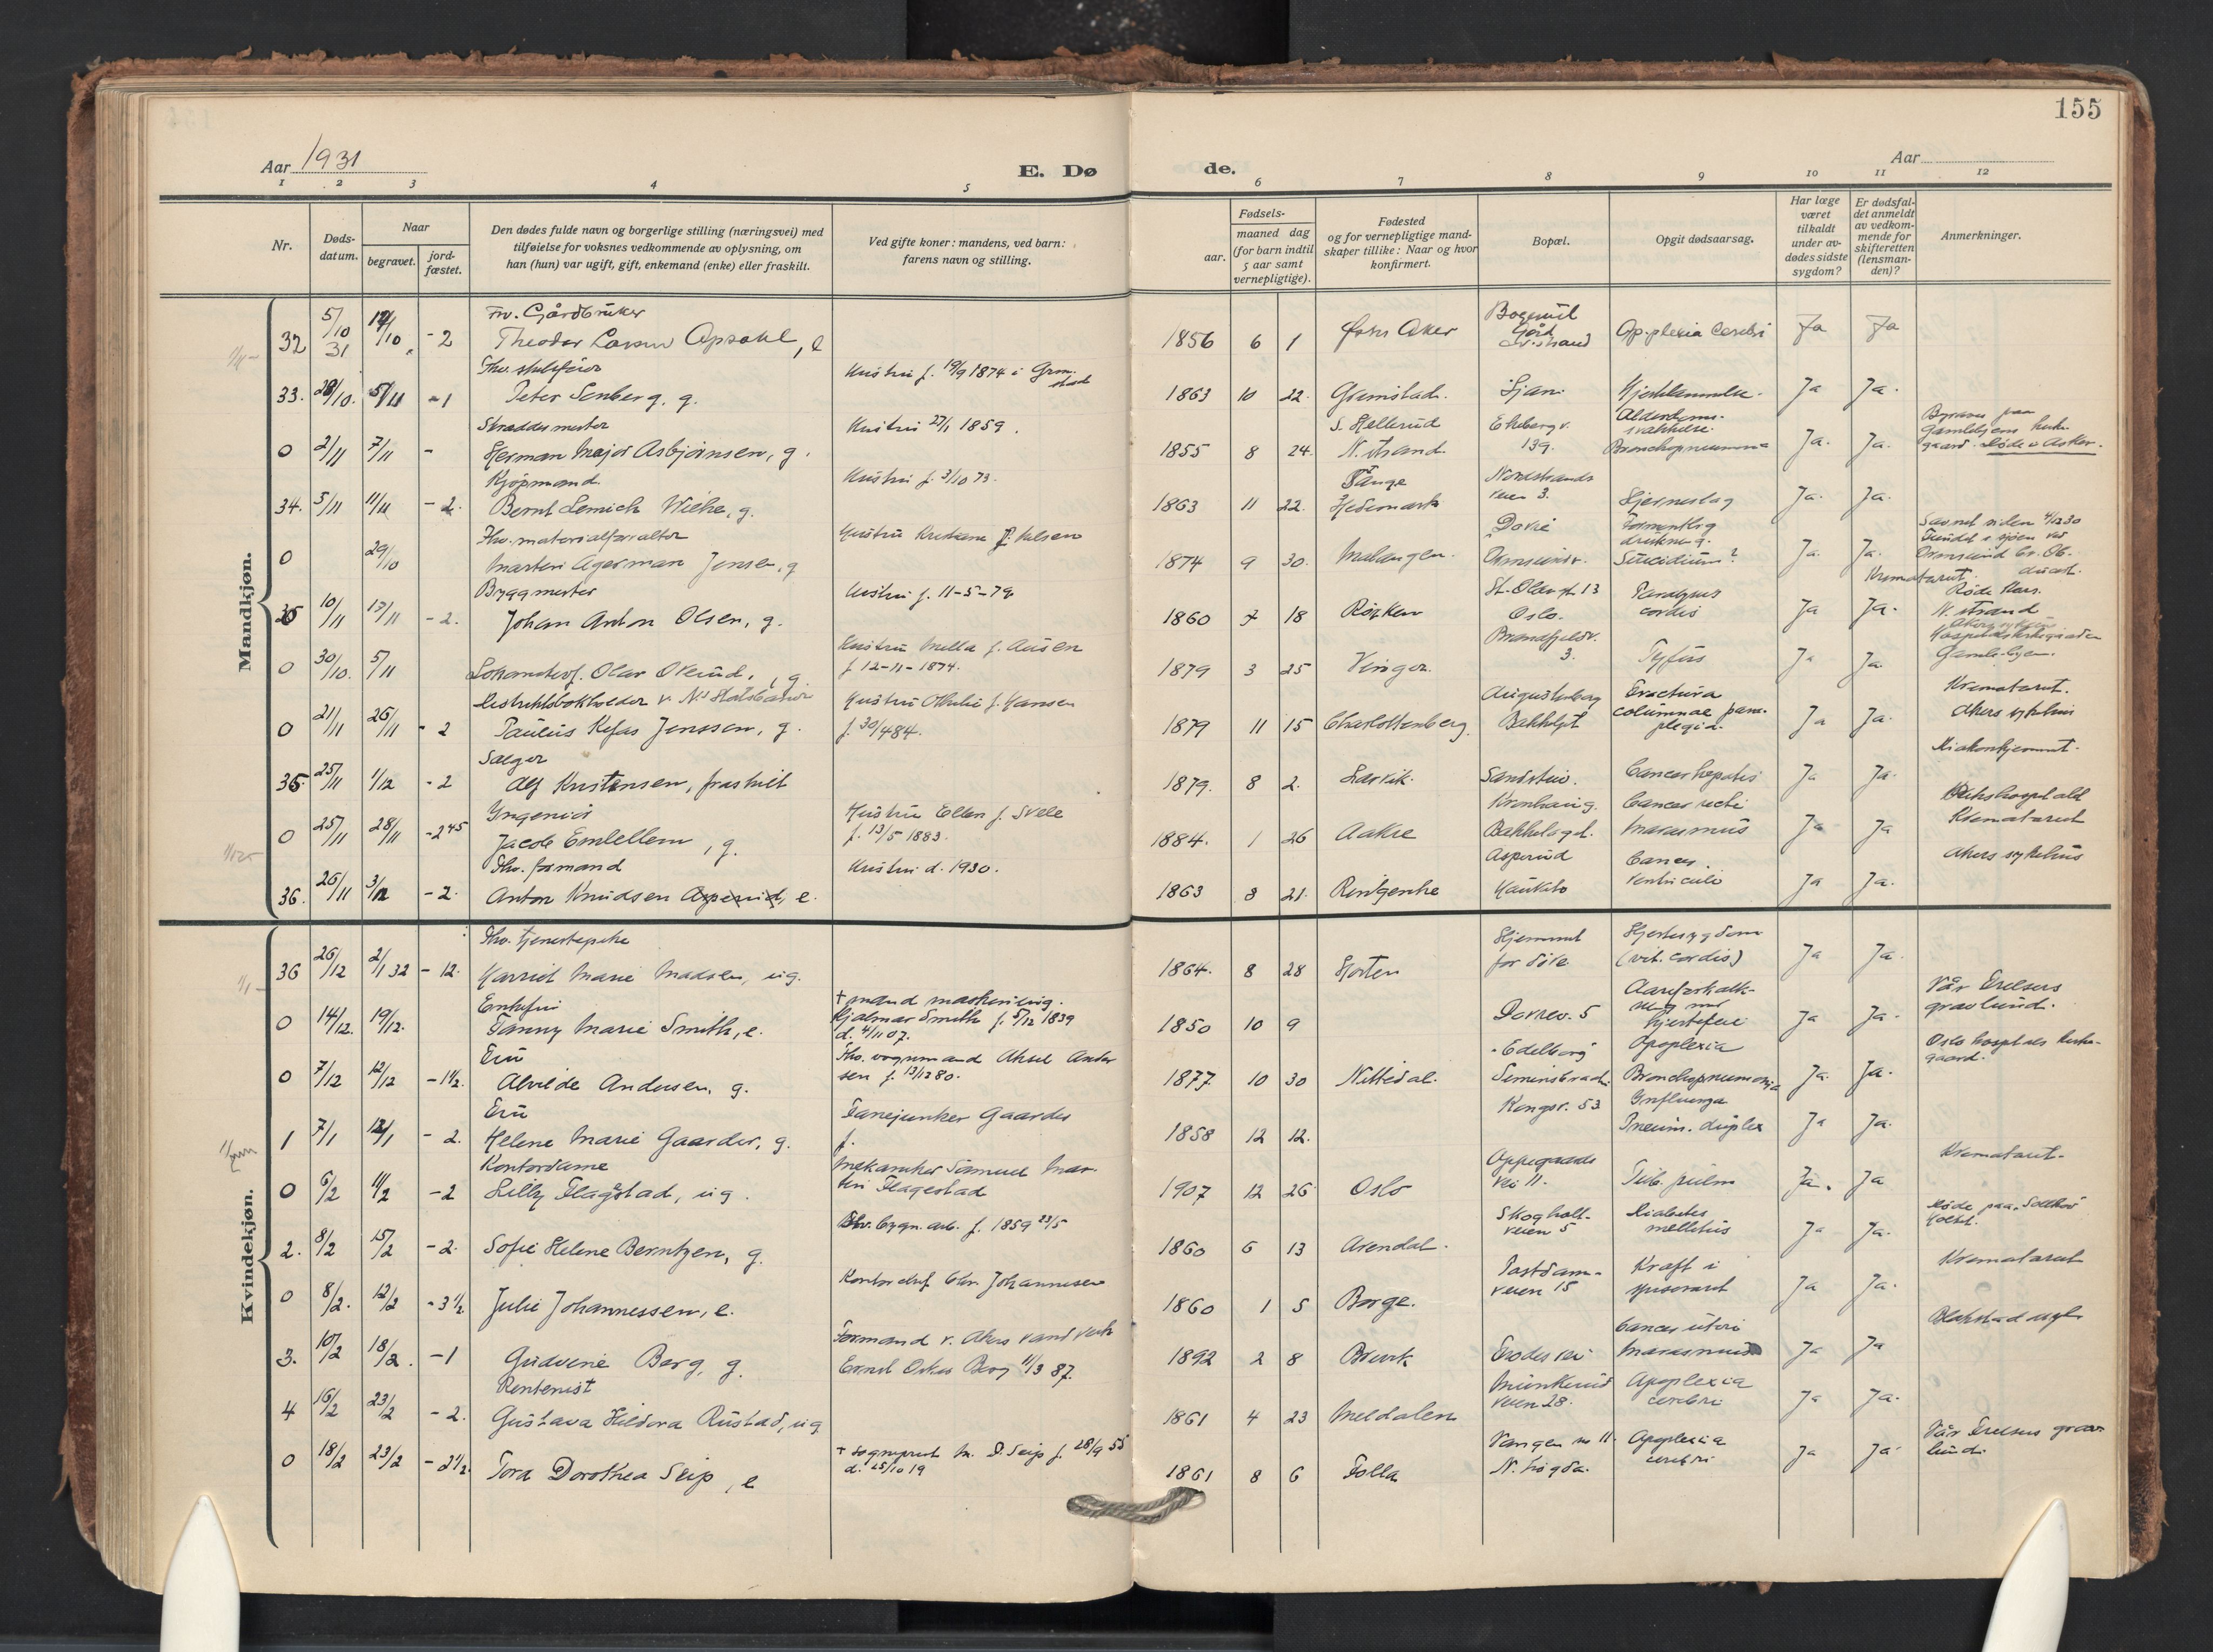 155
Aar 1931
E. Dø
de.
Aar
1 2 3 4 5 6 7 8 9 10 11 12
Nr.
Døds-
datum.
Naar
begravet.
jord-
fæstet.
Den dødes fulde navn og borgerlige stilling (næringsvei) med
tilføielse for voksnes vedkommende av oplysning, om
han (hun) var ugift, gift, enkemand (enke) eller fraskilt.
Ved gifte koner: mandens, ved barn:
farens navn og stilling.
Fødsels-
aar.
maaned dag
(for barn indtil
5 aar samt
vernepligtige).
Fødested
og for vernepligtige mand-
skaper tillike: Naar og hvor
konfirmert.
Bopæl.
Opgit dødsaarsag.
Har læge
været
tilkaldt
under av-
dødes sidste
sygdom?
Er dødsfal-
det anmeldt
av vedkom-
mende for
skifteretten
(lensman-
den)?
Anmerkninger.
Mandkjøn.
Fhv. Gårdbruker
32 5/10 31 12/10 - 2 Theodor Larsen Opsahl, e 1856 6 1 Østre Aker Gård Ap.plexia Cerebri Ja Ja
33. 28/10. 5/11 - 1 Peter Senberg, g. Hustru f. 19/9 1874 i Grimstad 1863 10 22 Grimstad. Ljan Hjertelammelse. Ja Ja.
Skreddermester
0 2/11 7/11 - Herman Major Asbjørnsen, g. Hustru 27/1 1859. 1855 8 24 S. Hellerud N. strand Ekeberg v. 139. Alderdoms-
svakkelse. Bronchopneumonia Ja. Ja.
Kjøpmand
34. 5/11 11/11 - 2. Bernt Lemich Wiche, g. Hustru f. 3/10 73. 1863 11 22 Tånge Hedemark Nordstrands
veien 3. Hjerneslag Ja. Ja.
Fhv. materialforvalter
0 29/10 Martin Agerman Jensen, g Hustru Kristiane f. Nilsen 1874 9 30. Malangen. Ormsundv. Formentlig
drukning. Suicidium? Ja. Ja. Savnet siden 4/12 30
Fundet i sjøen ved
Ormsund
Krematoriet.
Byggmester
35 10/11 13/11 - 2. Johan Anton Olsen, g. Hustru f. 11-5-79 1860 7 18 Røyken St. Olavs gt. 13
Oslo. Paralysis
cordis Ja Ja. Røde Kors.
N. strand
0 30/10. 5/11 Lokomotivf. Olav Oklund, g. Hustru Milla f. Ausen
f 12-11-1874. 1879 3 25 Vinger. 3. Tyfus Ja Ja Gamlebyen.
0 21/11 26/11 - 2 Paulus Kefas Jenssen, g. Hustru Othilie f. Hansen
f. 30/4 84. 1879 11 15 Charlottenberg. Augustenborg
Bekkelaget Fractura
columnae para-
plegia. Ja Ja. Krematoriet.
Akers sykehus
Sælger
35 25/11 1/12 - 2 Alf Kristensen, fraskilt 1879. 8 2. Larvik. Sandstuv. Cancer hepatis Ja Ja. Diakonhjemmet.
Ingeniør
0 25/11 28/11 - 2 45 Jacob Emlellem, g. Hustru Ellen f. Svele
f. 13/5 1883. 1884. 1 26 Aakre Bekkelaget. Cancer recti
Marasmus Ja Ja Rikshospitalet
Krematoriet
Fhv. formand
36. 26/11 3/12 - 2. Anton Knudsen Asperud, e. Hustru d. 1930. 1863 8 21. Ringerike Asperud
Hauketo Cancer
ventriculi Ja Ja. Akers sykehus
Kvindekjøn.
Fhv. tjenestepike
36 26/12 2/1 32 - 12. Harriet Marie Madsen, ug. 1864. 8 28 Horten Hjemmet
for døve Hjertesygdom
(vit. cordis) Ja Ja.
Enkefru
0 14/12. 19/12. Fanny Marie Smith, e. + mand maskining.
Hjalmar Smith f. 5/12 1839
d. 4/11 07. 1850 10 9 Dovrev. 5 Aareforkalk-
ning med
hjertefeil Ja Ja. Vår Frelsers
gravlund.
Fru
0 7/12 12/12 - 1½. Alvilde Andersen, g. Fhv. vognmand Aksel Ander
sen f. 13/12 80. 1877 10 30 Nittedal. Edelborg Apoplexia
Bronchopneumonia Ja. Ja. Oslo hospitals kirke-
gaard.
Fru
1 7/1 12/1 - 2. Helene Marie Gaarder, g. Fanejunker Gaarder
f. 1858 12 12. Kongsv. 53 Influenza
Pneum. duplex Ja Ja.
Kontordame
0 6/2 11/2 - 2 Lilly Flagestad, ug. Mekaniker Samuel Mar-
tin Flagestad 1907 12 26 Oslo Oppegaards
vei 11. Tub. pulm Ja. Ja Krematoriet.
2. 8/2 15/2 - 2. Sofie Helene Berntzen, g. Fhv. bygn. arb. f. 1859 23/5 1860 6 13 Arendal. Skogholt-
veien 5 Diabetes
mellitus Ja Ja.
0 8/2. 12/2 - 3½ Julie Johannessen, e. Kontorchef Chr. Johannesen 1860 1 5 Borge. Postdam-
veien 15 Kræft i
spiserøret Ja Ja. Krematoriet
3. 10/2 18/2. - 1 Gudveie Berg, g. Formand v. Akers vandverk
Ernst Oskar Berg 11/3 87. 1892 2 8 Brevik Cancer uteri
Marasmus Ja Ja Blakstad asyl
Rentenist
4 16/2 23/2 - 2. Gustava Hildora Rustad, ug 1861 4 23 Meldalen Munkerud
veien 28. Apoplexia
cerebri Ja Ja.
0 18/2 23/2 - 2½ Tora Dorothea Seip, e + Sogneprest M. D. Seip f. 28/9 55
d. 25/10 19 1861 8 6 Folla Vangen no 11.
N. høgda. Apoplexia
cerebri Ja Ja Vår Frelsers grav-
lund.